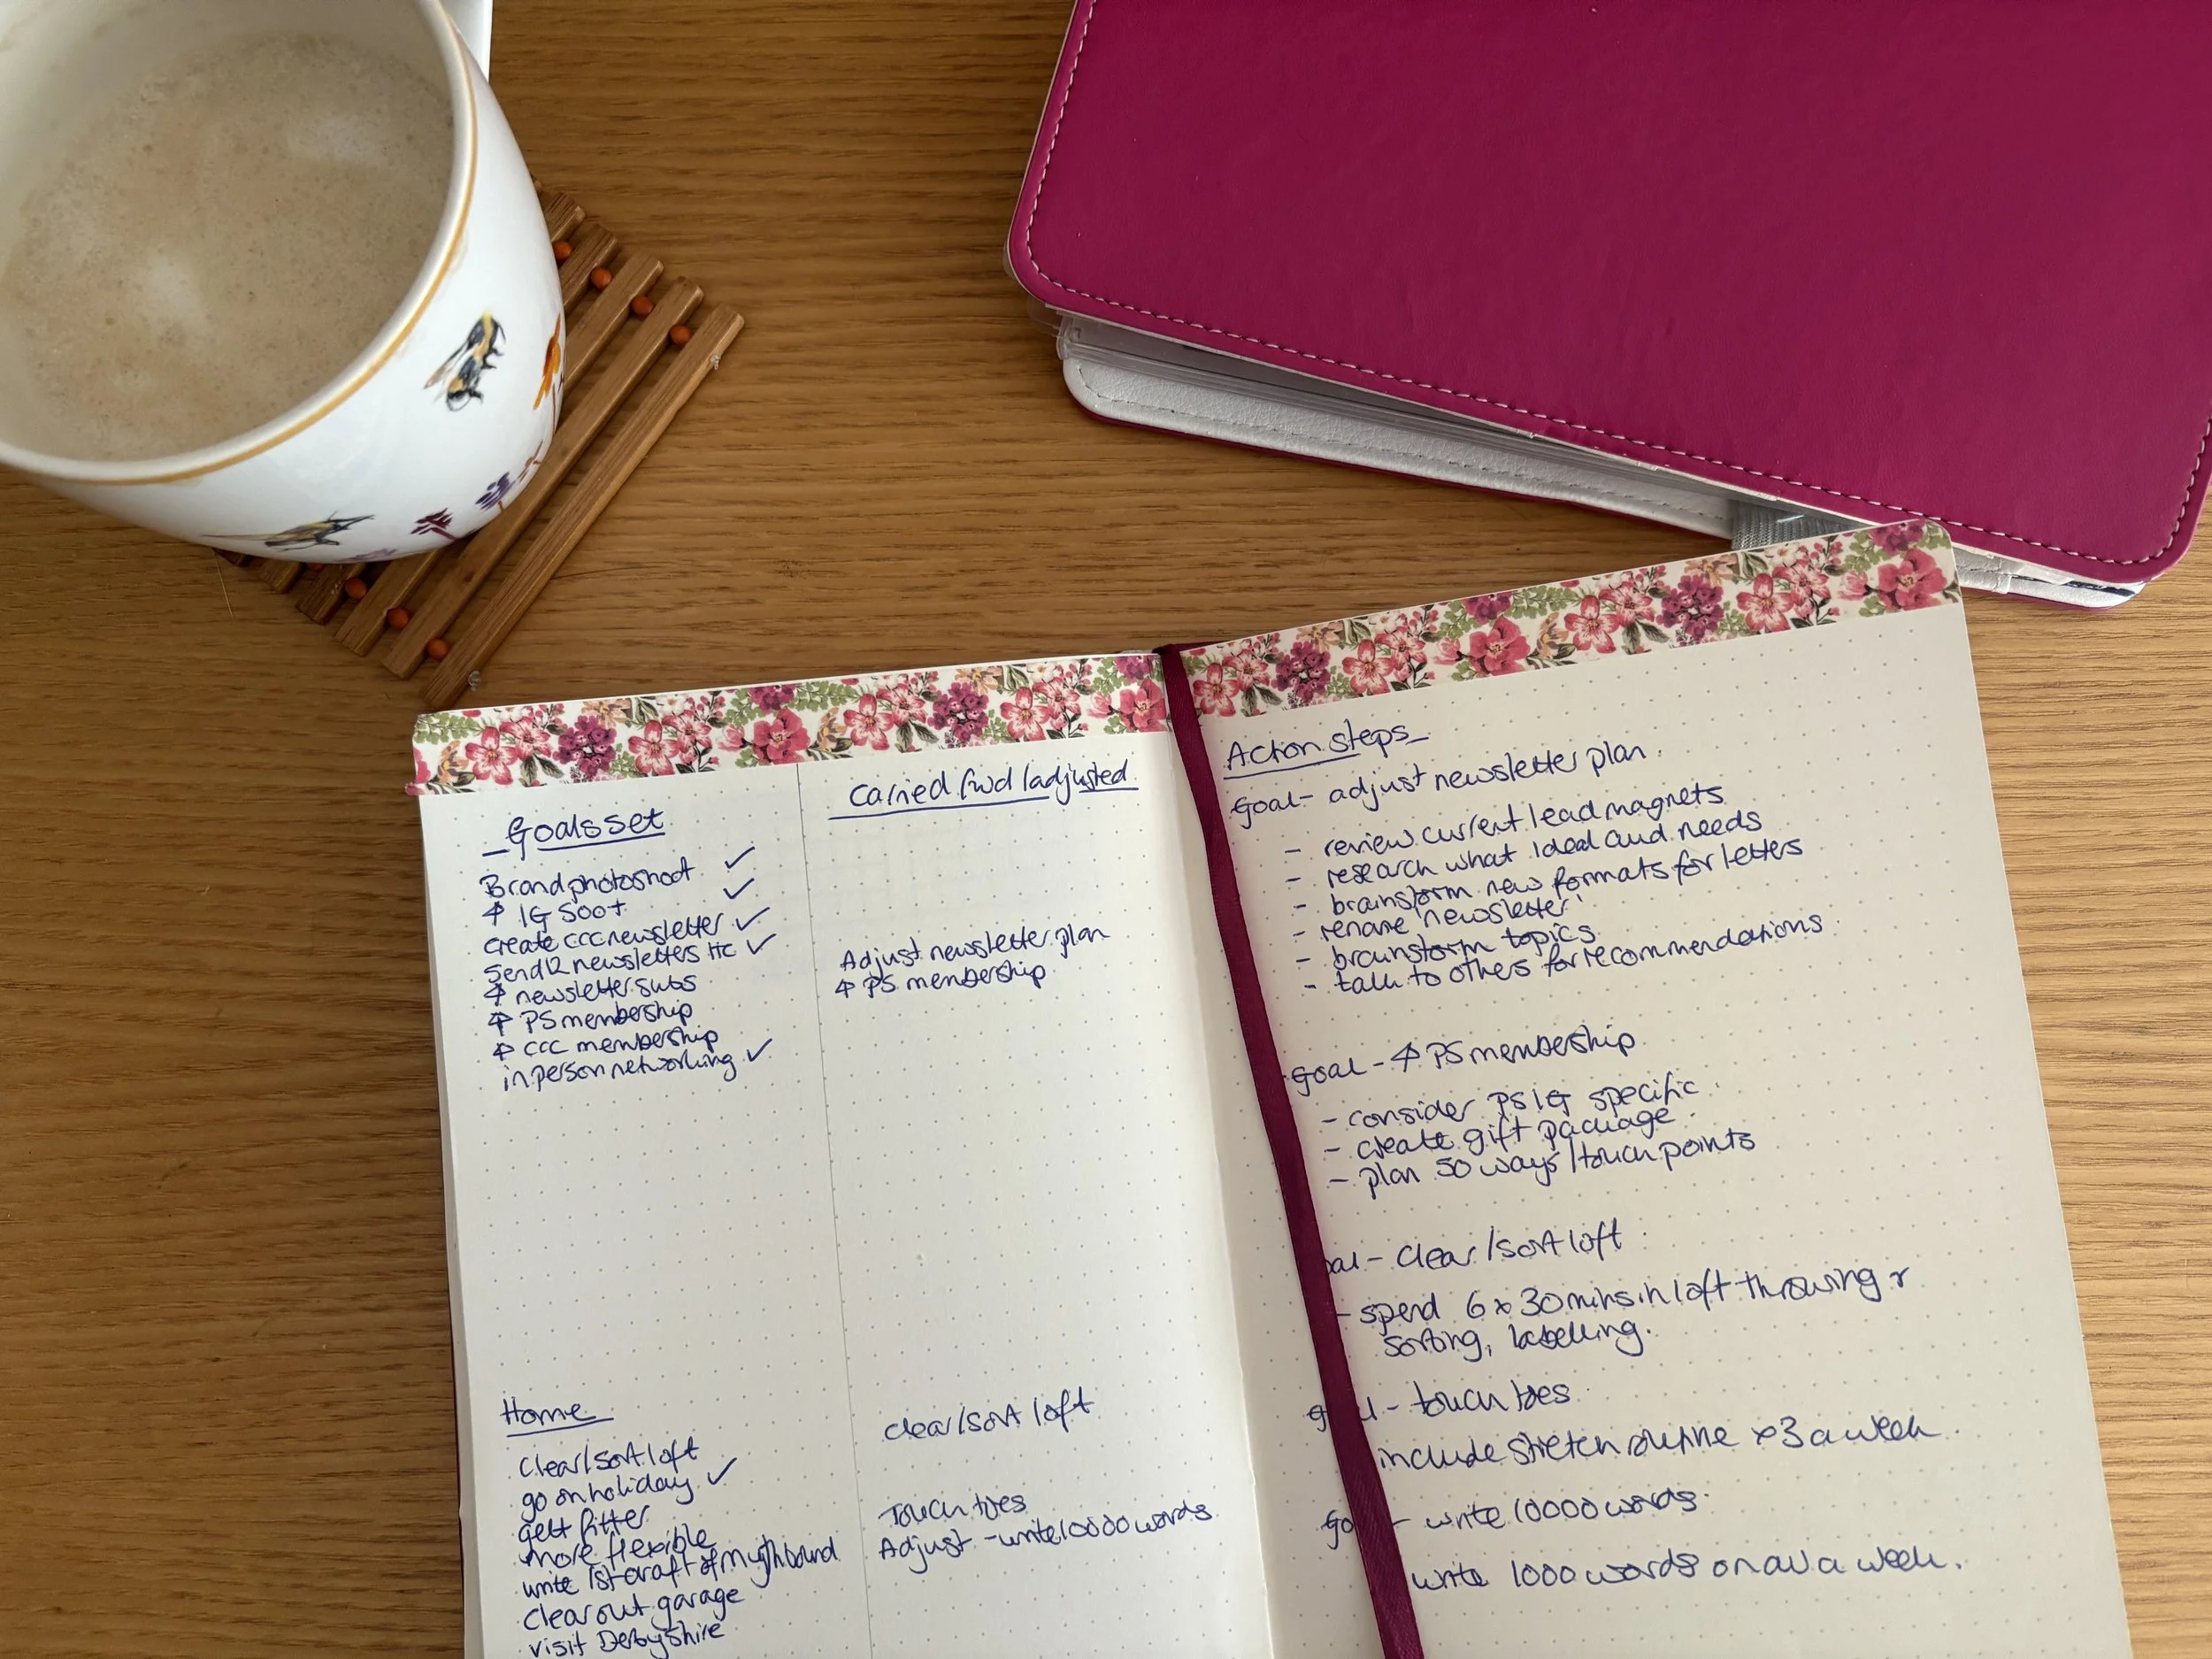 Goals set
Brand photoshoot ✓
↑ IG 500+ ✓
create ccc newsletter ✓
Send 12 newsletters HC ✓
↑ newsletter subs
↑ PS membership
↑ CCC membership
in person networking ✓
Home
Clear/sort loft
go on holiday ✓
get fitter
more flexible
write 1st draft of mythbound
Clear out garage
visit Derbyshire
Carried fwd/adjusted
Adjust newsletter plan
↑ PS membership
clear/sort loft
Touch toes
Adjust - write 10000 words
Action steps
Goal - adjust newsletter plan.
- review current lead magnets
- research what ideal aud needs
- brainstorm new formats for letters
- rename 'newsletter'
- brainstorm topics
- talk to others for recommendations
goal - ↑ PS membership
- consider PS IG specific.
- create gift package.
- plan 50 ways/touch points
oal - Clear/sort loft
- spend 6 x 30 mins in loft throwing
sorting, labelling.
g l - touch toes
include stretch routine x 3 a week
go - write 10000 words.
write 1000 words on av a week.